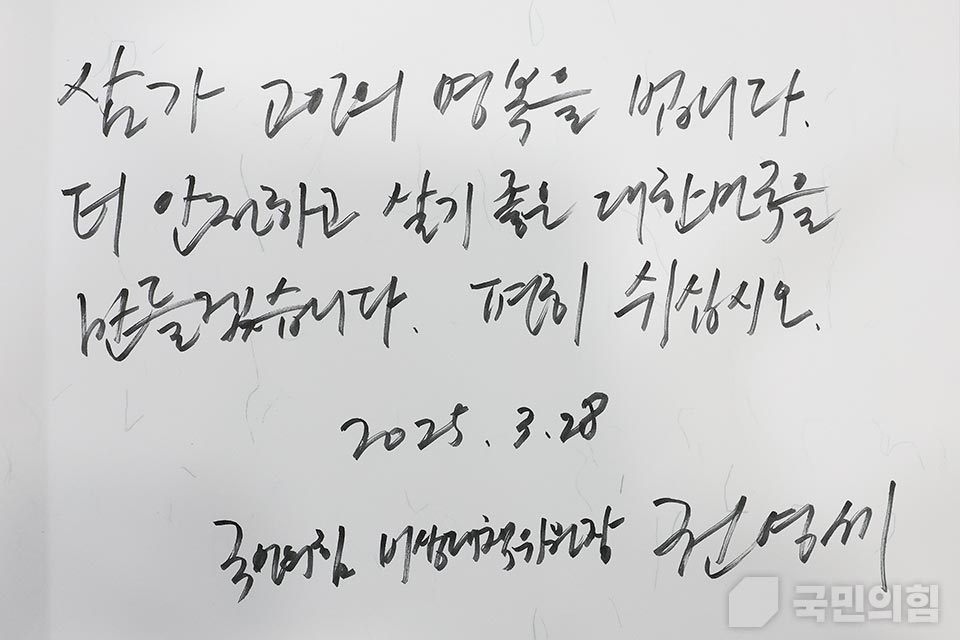 삼가 고인의 명복을 빕니다.
더 안전하고 살기 좋은 대한민국을
만들겠습니다. 편히 쉬십시오.
2025. 3. 28
국민의힘 비상대책위원장 권영세
국민의힘